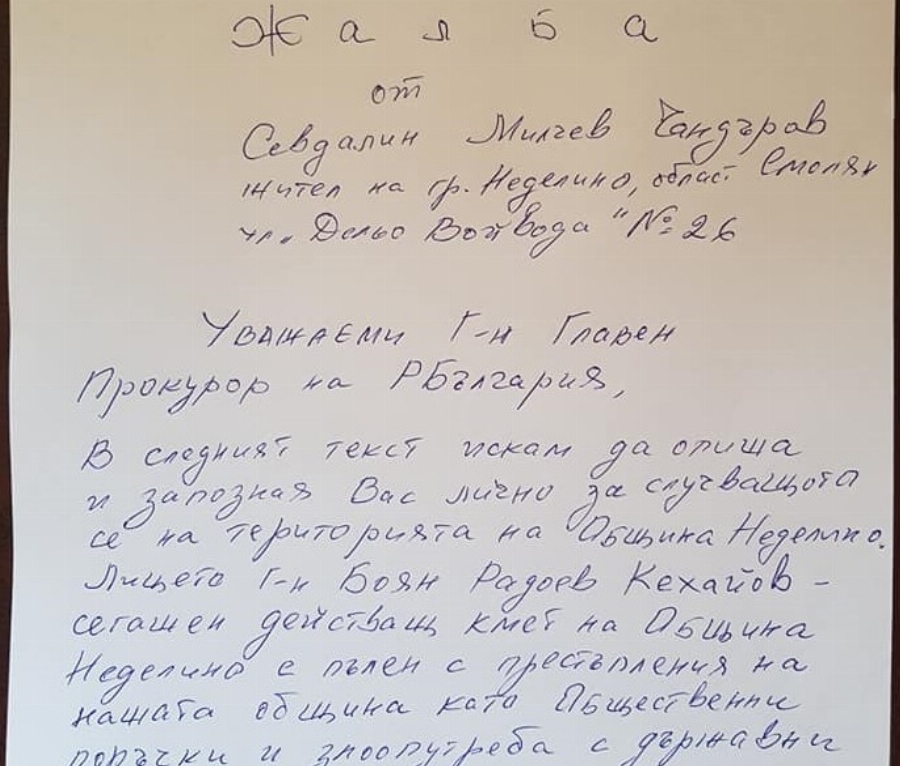 Жалба
от
Севдалин Милчев Чандъров
жител на гр. Неделино, област Смолян
ул. "Дельо Войвода" №26
Уважаеми Г-н Главен
Прокурор на РБългария,
В следният текст искам да опиша
и запозная Вас лично за случващото
се на територията на Община Неделино.
Лицето Г-н Боян Радоев Кехайов -
сегашен действащ кмет на Община
Неделино е пълен с престъпления на
нашата община като Обществени
поръчки и злоопутреба с държавни